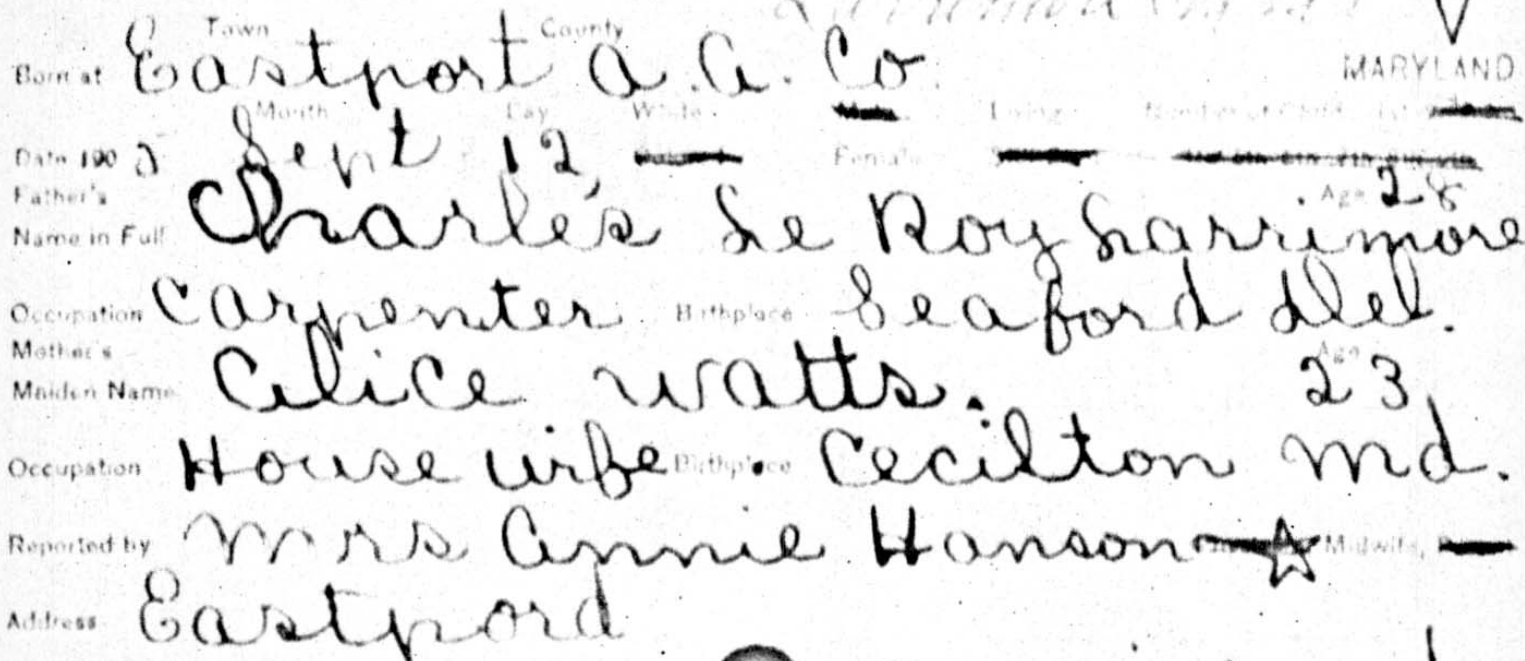 Town County
Born at Eastport A. A. Co. MARYLAND
Month Day White Living Number of Child 1st
Date 190 Sept 12, Female
Father's Age 28
Name in Full Charles Le Roy Larrimore
Occupation Carpenter Birthplace Seaford Del.
Mother's Age
Maiden Name Alice Watts. 23,
Occupation House wife Birthplace Cecilton Md.
Reported by Mrs Annie Hanson Midwife,
Address Eastpord